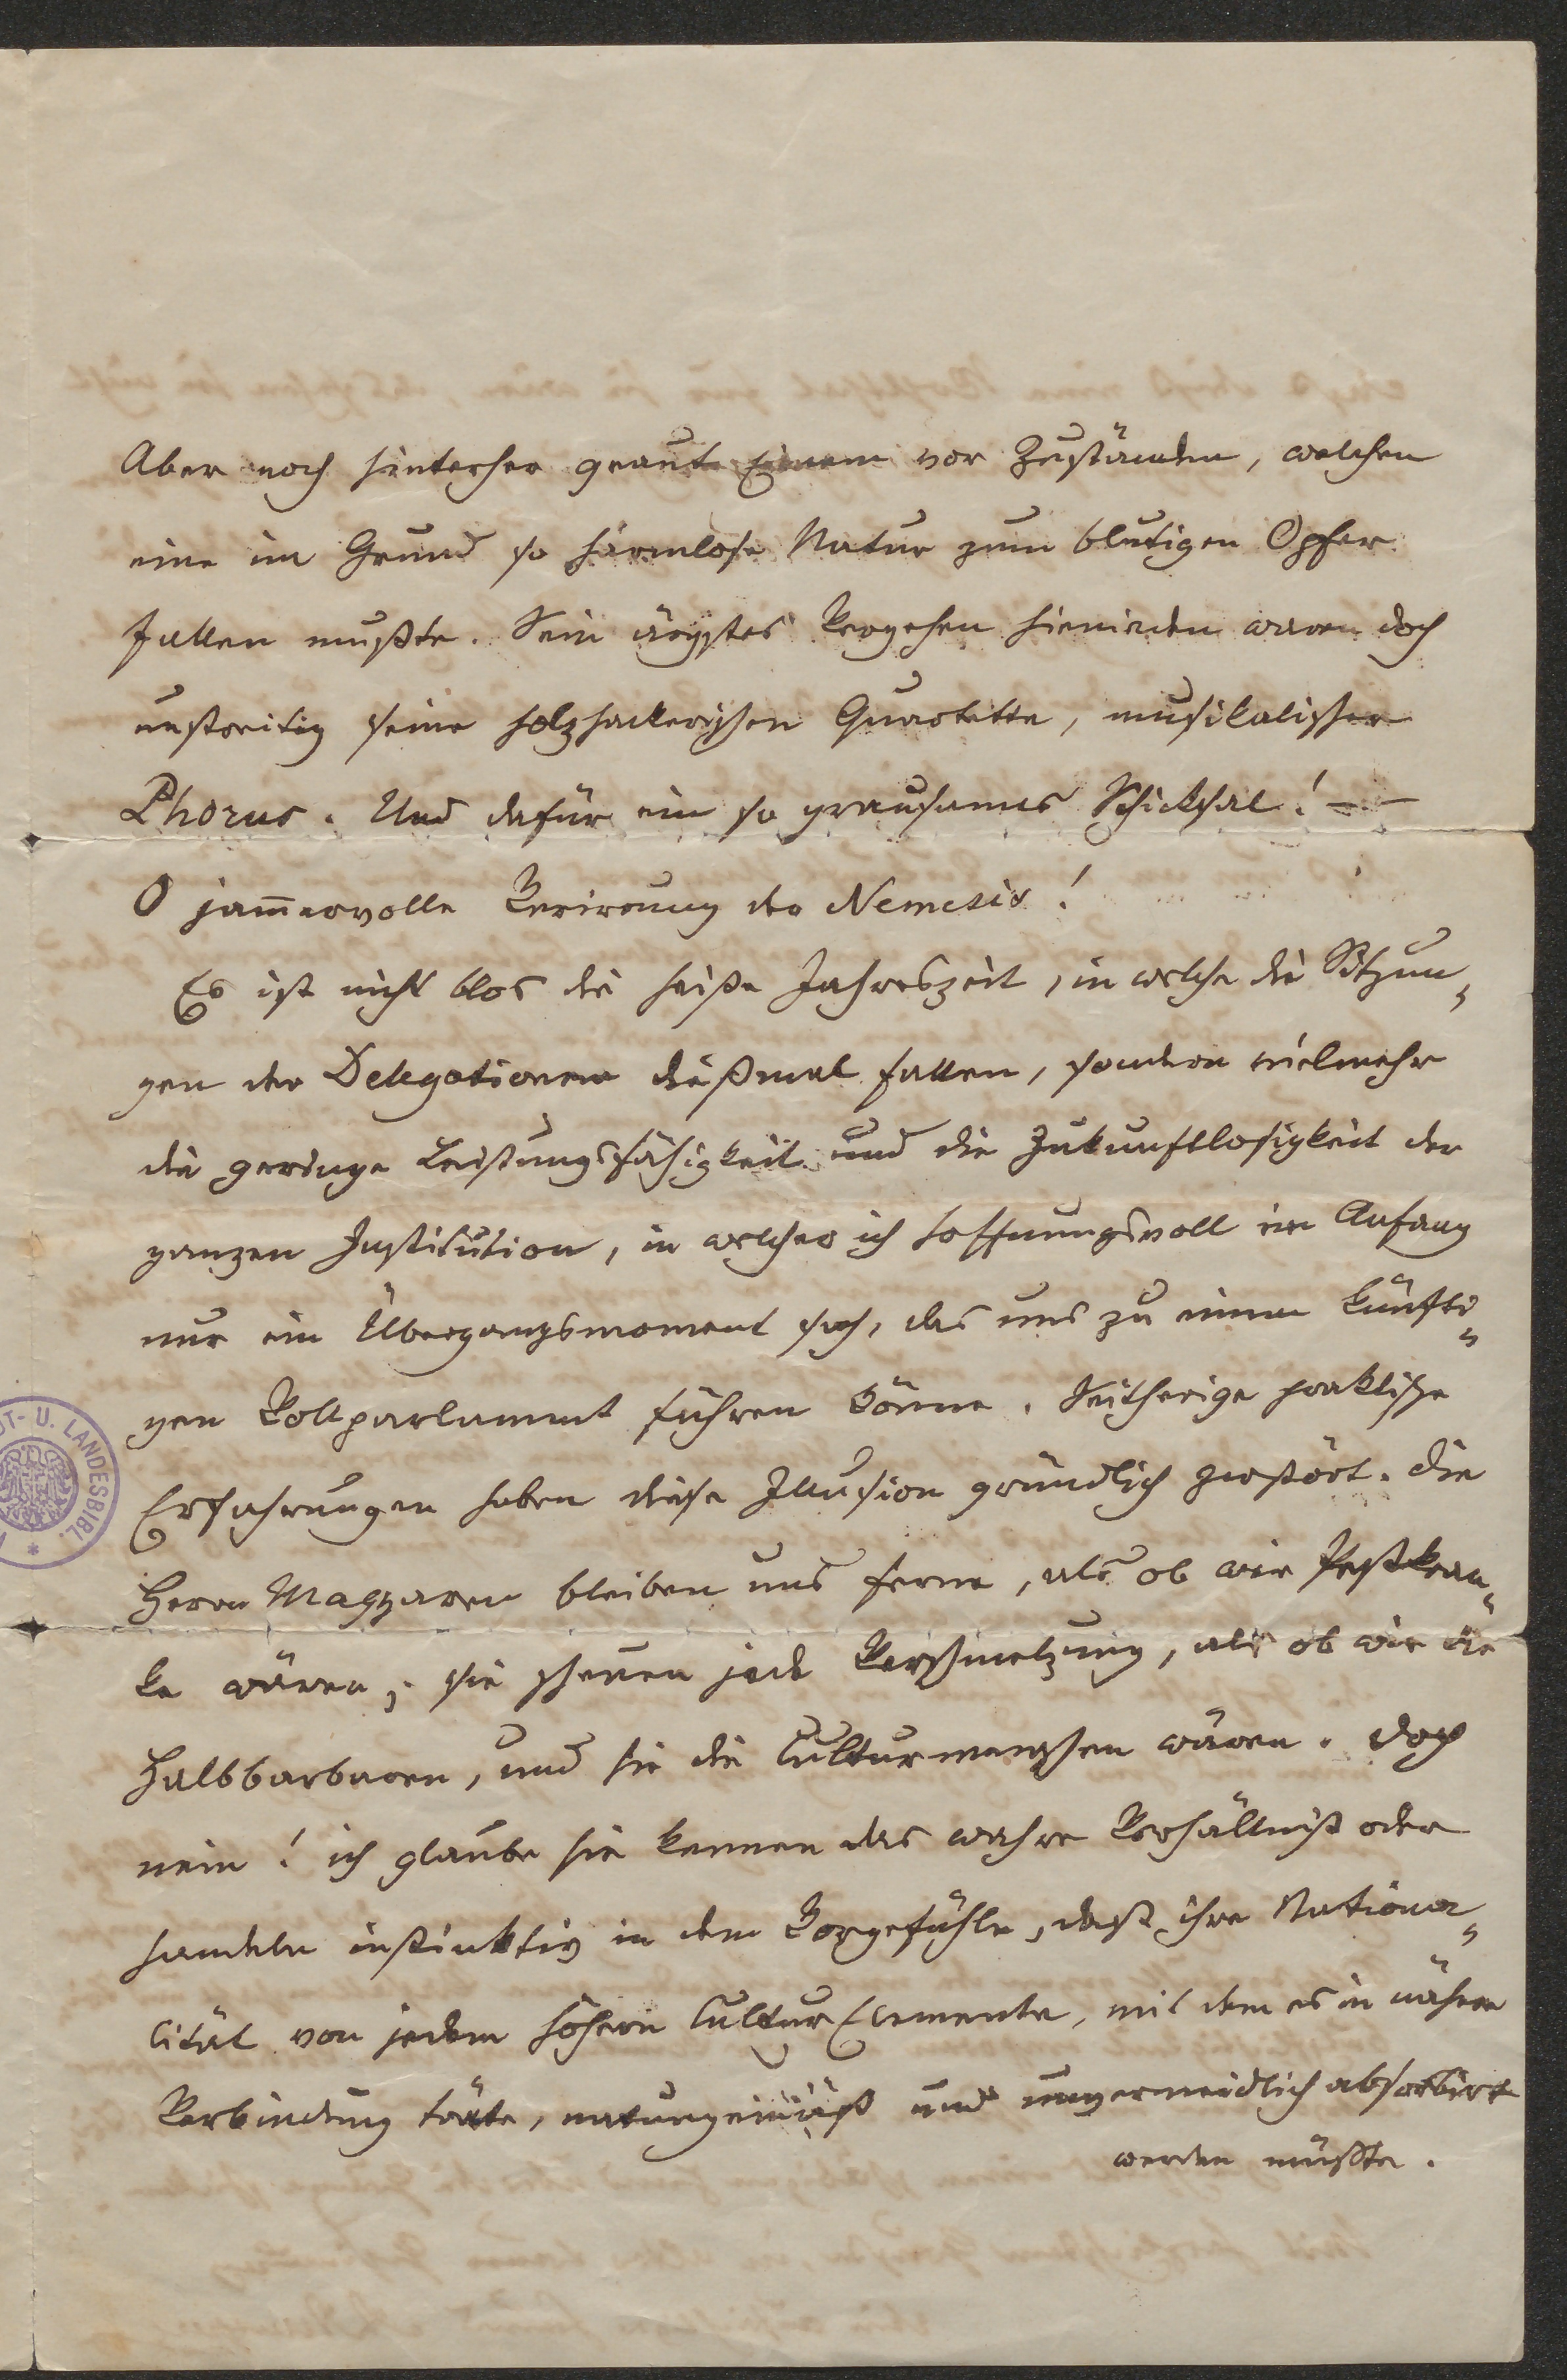 Aber noch hinterher graut Einem vor Zuständen, welchen
eine im Grund so harmlose Natur zum blutigen Opfer
fallen mußte. Sein ärgstes Vergehen hienieden waren doch
unstreitig seine holzhackerischen Quartette, musikalischer
Phorus. Und dafür ein so grausames Schicksal! —
O jam̄ervolle Verirrung der Nemesis!
Es ist nicht blos die heiße Jahreszeit, in welche die Sitzun„
gen der Delegationen dießmal fallen, sondern vielmehr
die geringe Leistungsfähigkeit und die Zukunftlosigkeit der
ganzen Institution, in welcher ich hoffnungsvoll im Anfang
nur ein Übergangsmoment sah, das uns zu einem künfti„
gen Vollparlament führen könne. Seitherige praktische
Erfahrungen haben diese Illusion gründlich zerstört. Die
Herrn Magyaren bleiben uns ferne, als ob wir Pestkran„
ke wären; sie scheuen jede Verschmelzung, als ob wir die
Halbbarbaren, und sie die Culturmenschen wären. Doch
nein! ich glaube sie kennen das wahre Verhältniß oder
handeln instinktiv in dem Vorgefühle, daß ihre Nationa„
lität von jedem höhern Cultur Elemente, mit dem es in nähere
Verbindung träte, naturgemäß und unvermeidlich absorbirt
werden müßte.
ST- U. LANDESBIBL.